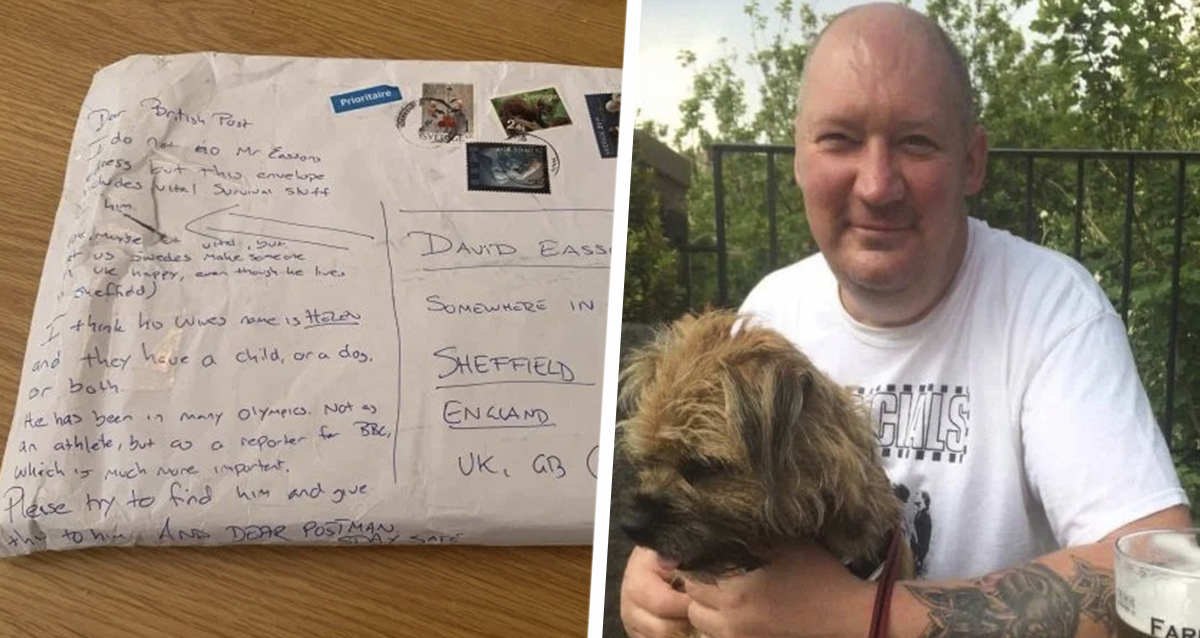 Dear British Post
I do not Mr Eassons
but this envelope
vital survival stuff
him.
vital, but
us Swedes make someone
UK happy, even though he lives
Sheffield)
I think his wives name is HELEN
and they have a child, or a dog,
or both.
He has been in many olympics. Not as
an athlete, but as a reporter for BBC,
which is much more important.
Please try to find him and give
this to him. AND DEAR POSTMAN
STAY SAFE
Prioritaire
SVERIGE
DAVID EASS
SOMEWHERE IN
SHEFFIELD
ENGLAND
UK, GB (
CIALS
FAB